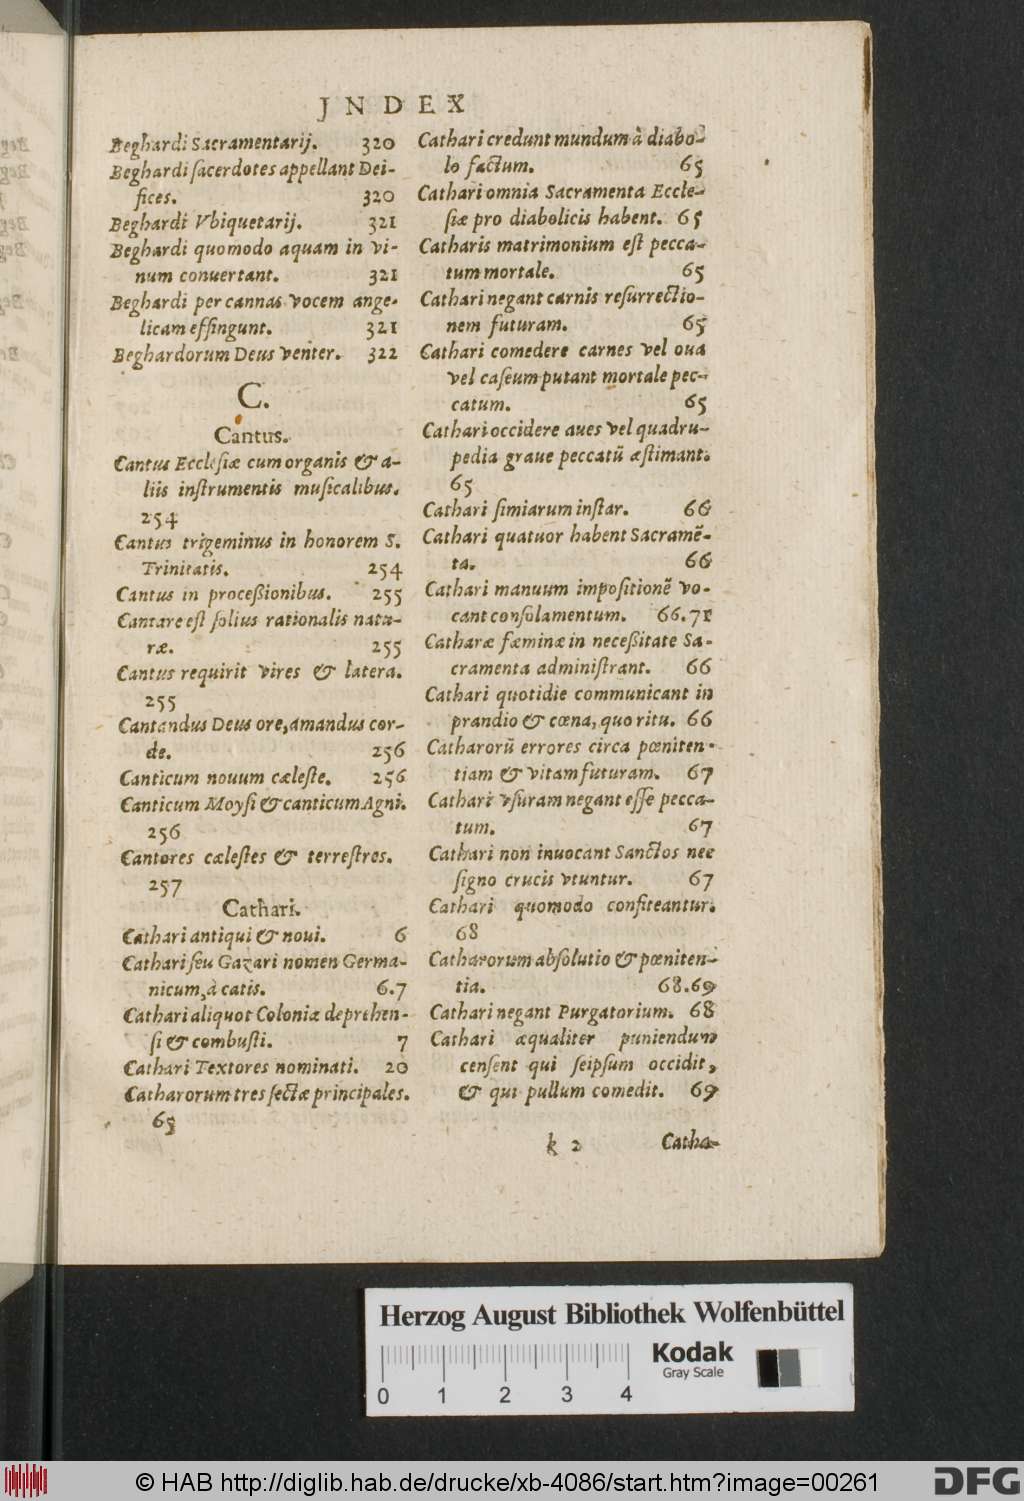 JNDEX
Beghardi Sacramentarij. 320
Beghardi sacerdotes appellant Dei-
fices. 320
Beghardi Vbiquetarij. 321
Beghardi quomodo aquam in vi-
num conuertant. 321
Beghardi per cannas vocem ange-
licam effingunt. 321
Beghardorum Deus venter. 322
C.
Cantus.
Cantus Ecclesiæ cum organis & a-
liis instrumentis musicalibus.
254
Cantus trigeminus in honorem S.
Trinitatis. 254
Cantus in proceßionibus. 255
Cantare est solius rationalis natu-
ræ. 255
Cantus requirit vires & latera.
255
Cantandus Deus ore, amandus cor-
de. 256
Canticum nouum cæleste. 256
Canticum Moysi & canticum Agni.
256
Cantores cælestes & terrestres.
257
Cathari.
Cathari antiqui & noui. 6
Cathari seu Gazari nomen Germa-
nicum, à catis. 6.7
Cathari aliquot Coloniæ deprehen-
si & combusti. 7
Cathari Textores nominati. 20
Catharorum tres sectæ principales.
65
Cathari credunt mundum à diabo-
lo factum. 65
Cathari omnia Sacramenta Eccle-
siæ pro diabolicis habent. 65
Catharis matrimonium est pecca-
tum mortale. 65
Cathari negant carnis resurrectio-
nem futuram. 65
Cathari comedere carnes vel oua
vel caseum putant mortale pec-
catum. 65
Cathari occidere aues vel quadru-
pedia graue peccatũ æstimant.
65
Cathari simiarum instar. 66
Cathari quatuor habent Sacramẽ-
ta. 66
Cathari manuum impositionẽ vo-
cant consolamentum. 66.71
Catharæ fæminæ in neceßitate Sa-
cramenta administrant. 66
Cathari quotidie communicant in
prandio & cœna, quo ritu. 66
Catharorũ errores circa pœniten-
tiam & vitam futuram. 67
Cathari vsuram negant esse pecca-
tum. 67
Cathari non inuocant Sanctos nec
signo crucis vtuntur. 67
Cathari quomodo confiteantur.
68
Catharorum absolutio & pœniten-
tia. 68.69
Cathari negant Purgatorium. 68
Cathari æqualiter puniendum
censent qui seipsum occidit,
& qui pullum comedit. 69
k 2 Catha-
Herzog August Bibliothek Wolfenbüttel
Kodak
Gray Scale
0 1 2 3 4
© HAB http://diglib.hab.de/drucke/xb-4086/start.htm?image=00261
DFG